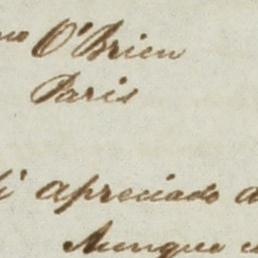 O'Brien
Paris
apreciado
Aunque